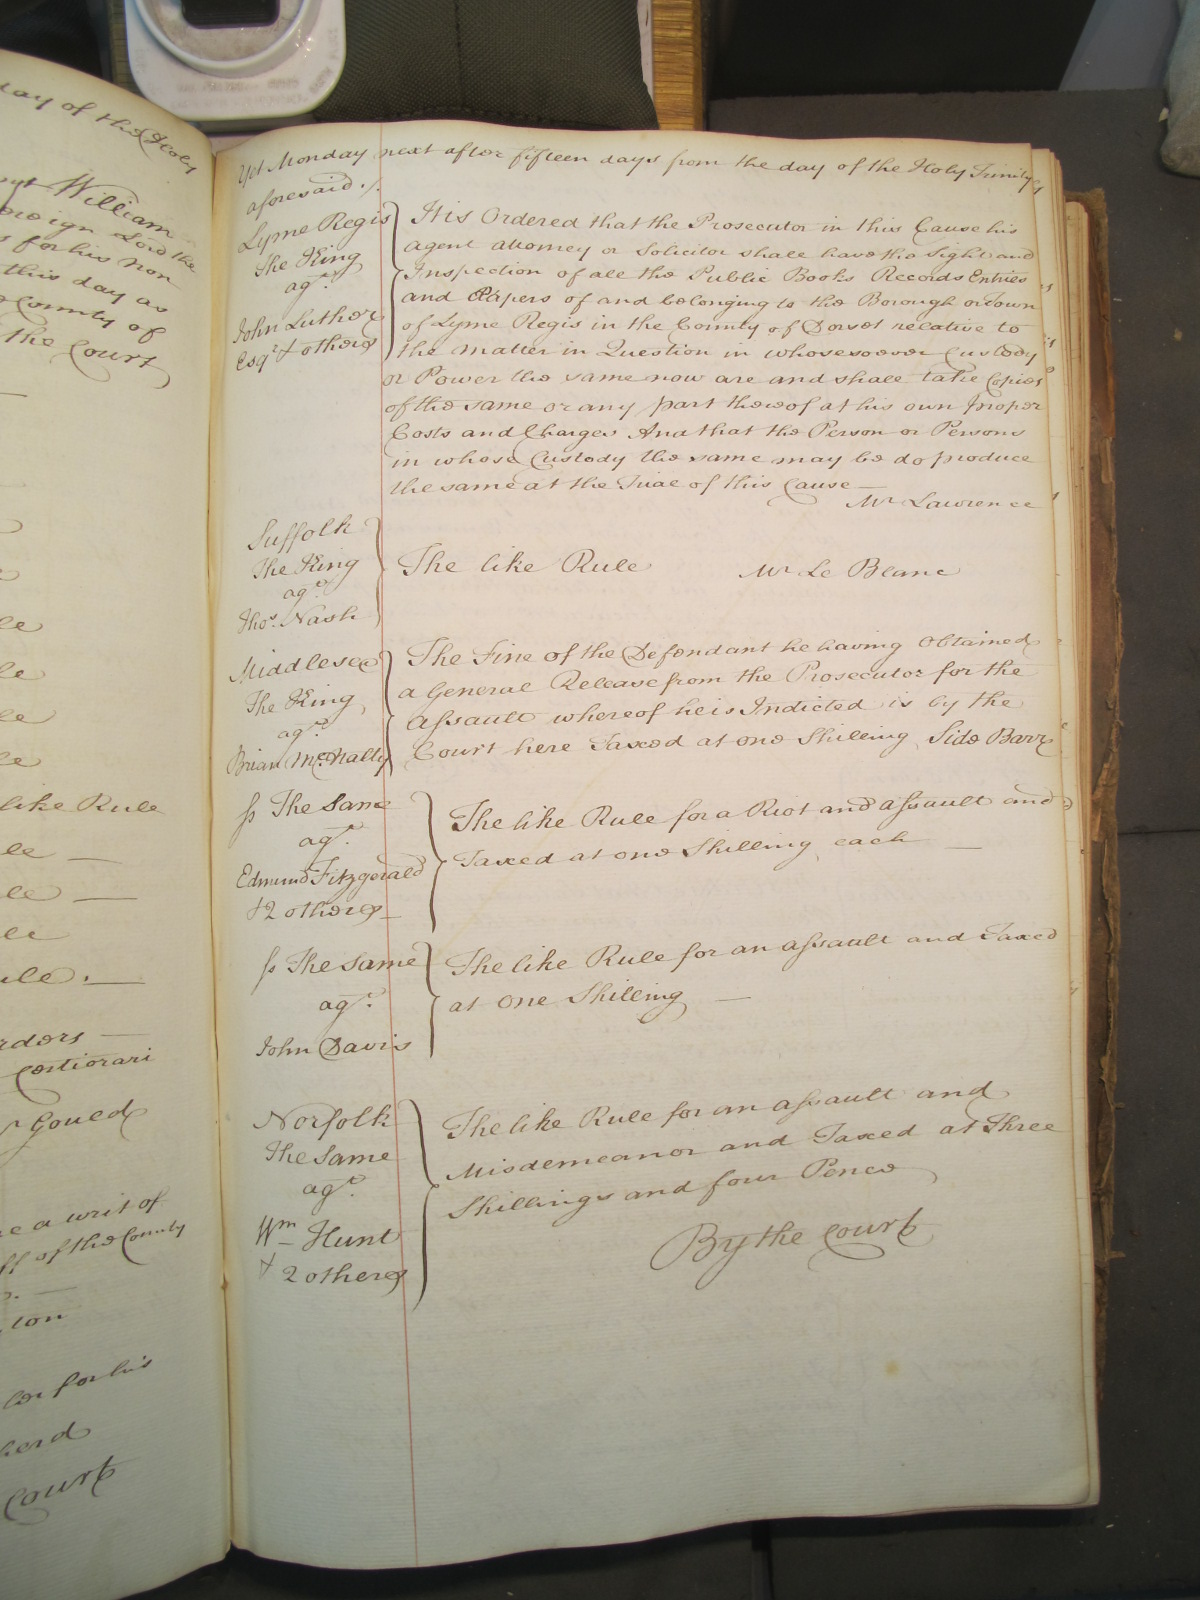 day of the Holy
William
sovereign Lord the
s for his non
this day as
County of
the Court
like Rule
Orders —
Certiorari
Gould
a writ of
of the County
for his
Court
Yet Monday next after fifteen days from the day of the Holy Trinity
aforesaid ./.
Lyme Regis
The King
agt
John Luther
Esqr & others
It is Ordered that the Prosecutor in this Cause his
agent attorney or Solicitor shall have the Sight and
Inspection of all the Public Books Records Entries
and Papers of and belonging to the Borough or Town
of Lyme Regis in the County of Dorset relative to
the matter in Question in whosesoever Custody
or Power the same now are and shall take Copies
of the same or any part thereof at his own proper
Costs and Charges And that the Person or Persons
in whose Custody the same may be do produce
the same at the Trial of this Cause —
Mr Lawrence
Suffolk
The King
agt
Thos Nash
The like Rule Mr Le Blanc
Middlesex
The King
agt
Brian McNally
The Fine of the Defendant he having Obtained
a General Release from the Prosecutor for the
assault whereof he is Indicted is by the
Court here Taxed at one Shilling Side Barr
ss The Same
agt
Edmund Fitzgerald
& 2 others
The like Rule for a Riot and assault and
Taxed at one Shilling each —
ss The same
agt
John Davis
The like Rule for an assault and Taxed
at One Shilling —
Norfolk
The Same
agt
Wm Hunt
& 2 others
The like Rule for an assault and
Misdemeanor and Taxed at Three
Shillings and four Pence
By the Court